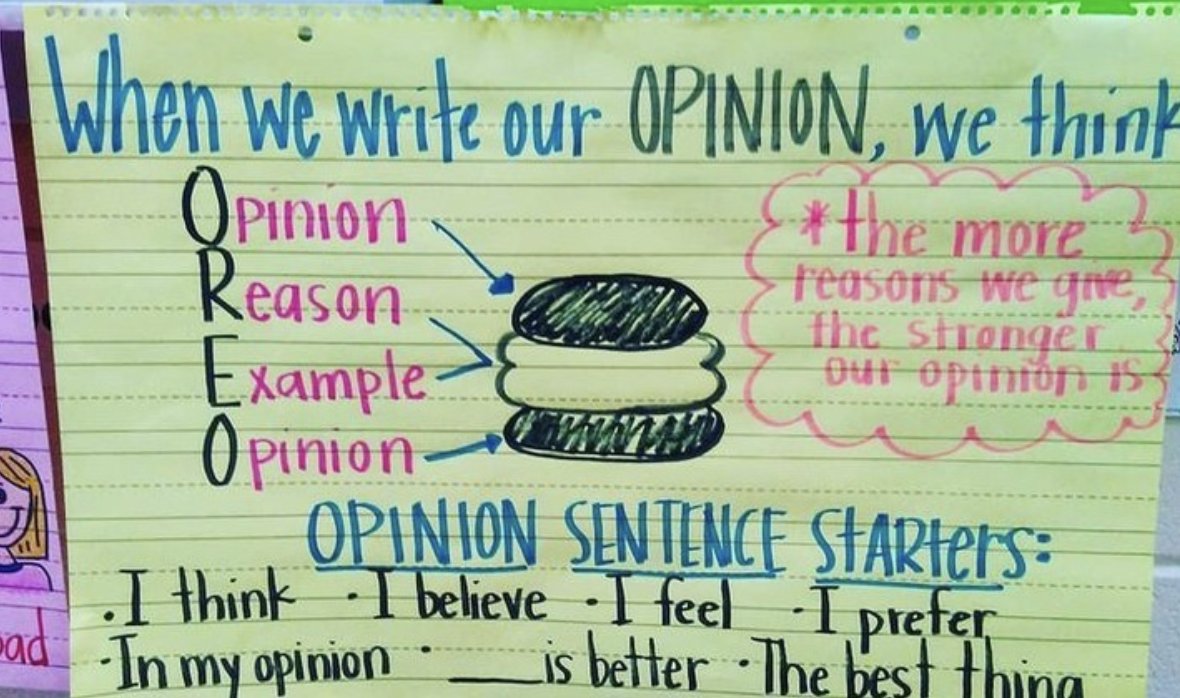 When we write our OPINION, we think
Opinion
Reason
Example
Opinion
*the more
reasons we give,
the stronger
our opinion is
OPINION SENTENCE StARterS:
.I think ·I believe ·I feel ·I prefer
·In my opinion ·____is better ·The best thing